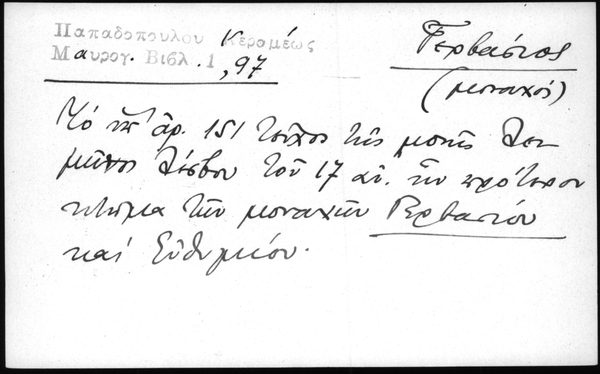 Παπαδοπούλου Κεραμέως
Μαυρογ. Βιβλ. 1, 97
Γερβάσιος
(μοναχός)
Τὸ ὑπ' ἀρ. 151 τεῦχος τῆς μονῆς Λει-
μῶνος Λέσβου τοῦ 17 αἰ. ἦν πρότερον
κτῆμα τῶν μοναχῶν Γερβασίου
καὶ Εὐθυμίου.